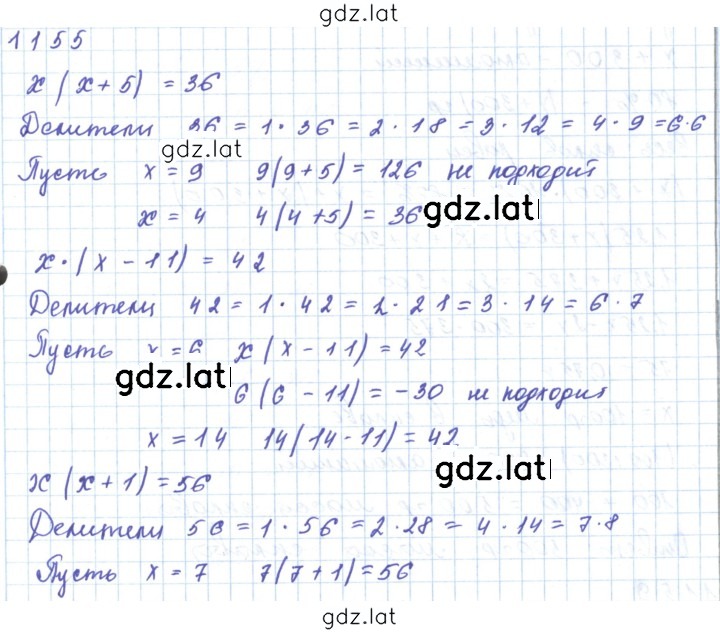 gdz.lat
1155
x (x + 5) = 36
Делители 36 = 1 · 36 = 2 · 18 = 3 · 12 = 4 · 9 = 6 · 6
gdz.lat
Пусть x = 9 9(9+5) = 126 не подходит
x = 4 4(4+5) = 36
gdz.lat
x · (x - 11) = 42
Делители 42 = 1 · 42 = 2 · 21 = 3 · 14 = 6 · 7
Пусть x = 6 x (x - 11) = 42
gdz.lat
6 (6 - 11) = -30 не подходит
x = 14 14(14 - 11) = 42
gdz.lat
x (x + 1) = 56
Делители 56 = 1 · 56 = 2 · 28 = 4 · 14 = 7 · 8
Пусть x = 7 7(7 + 1) = 56
gdz.lat